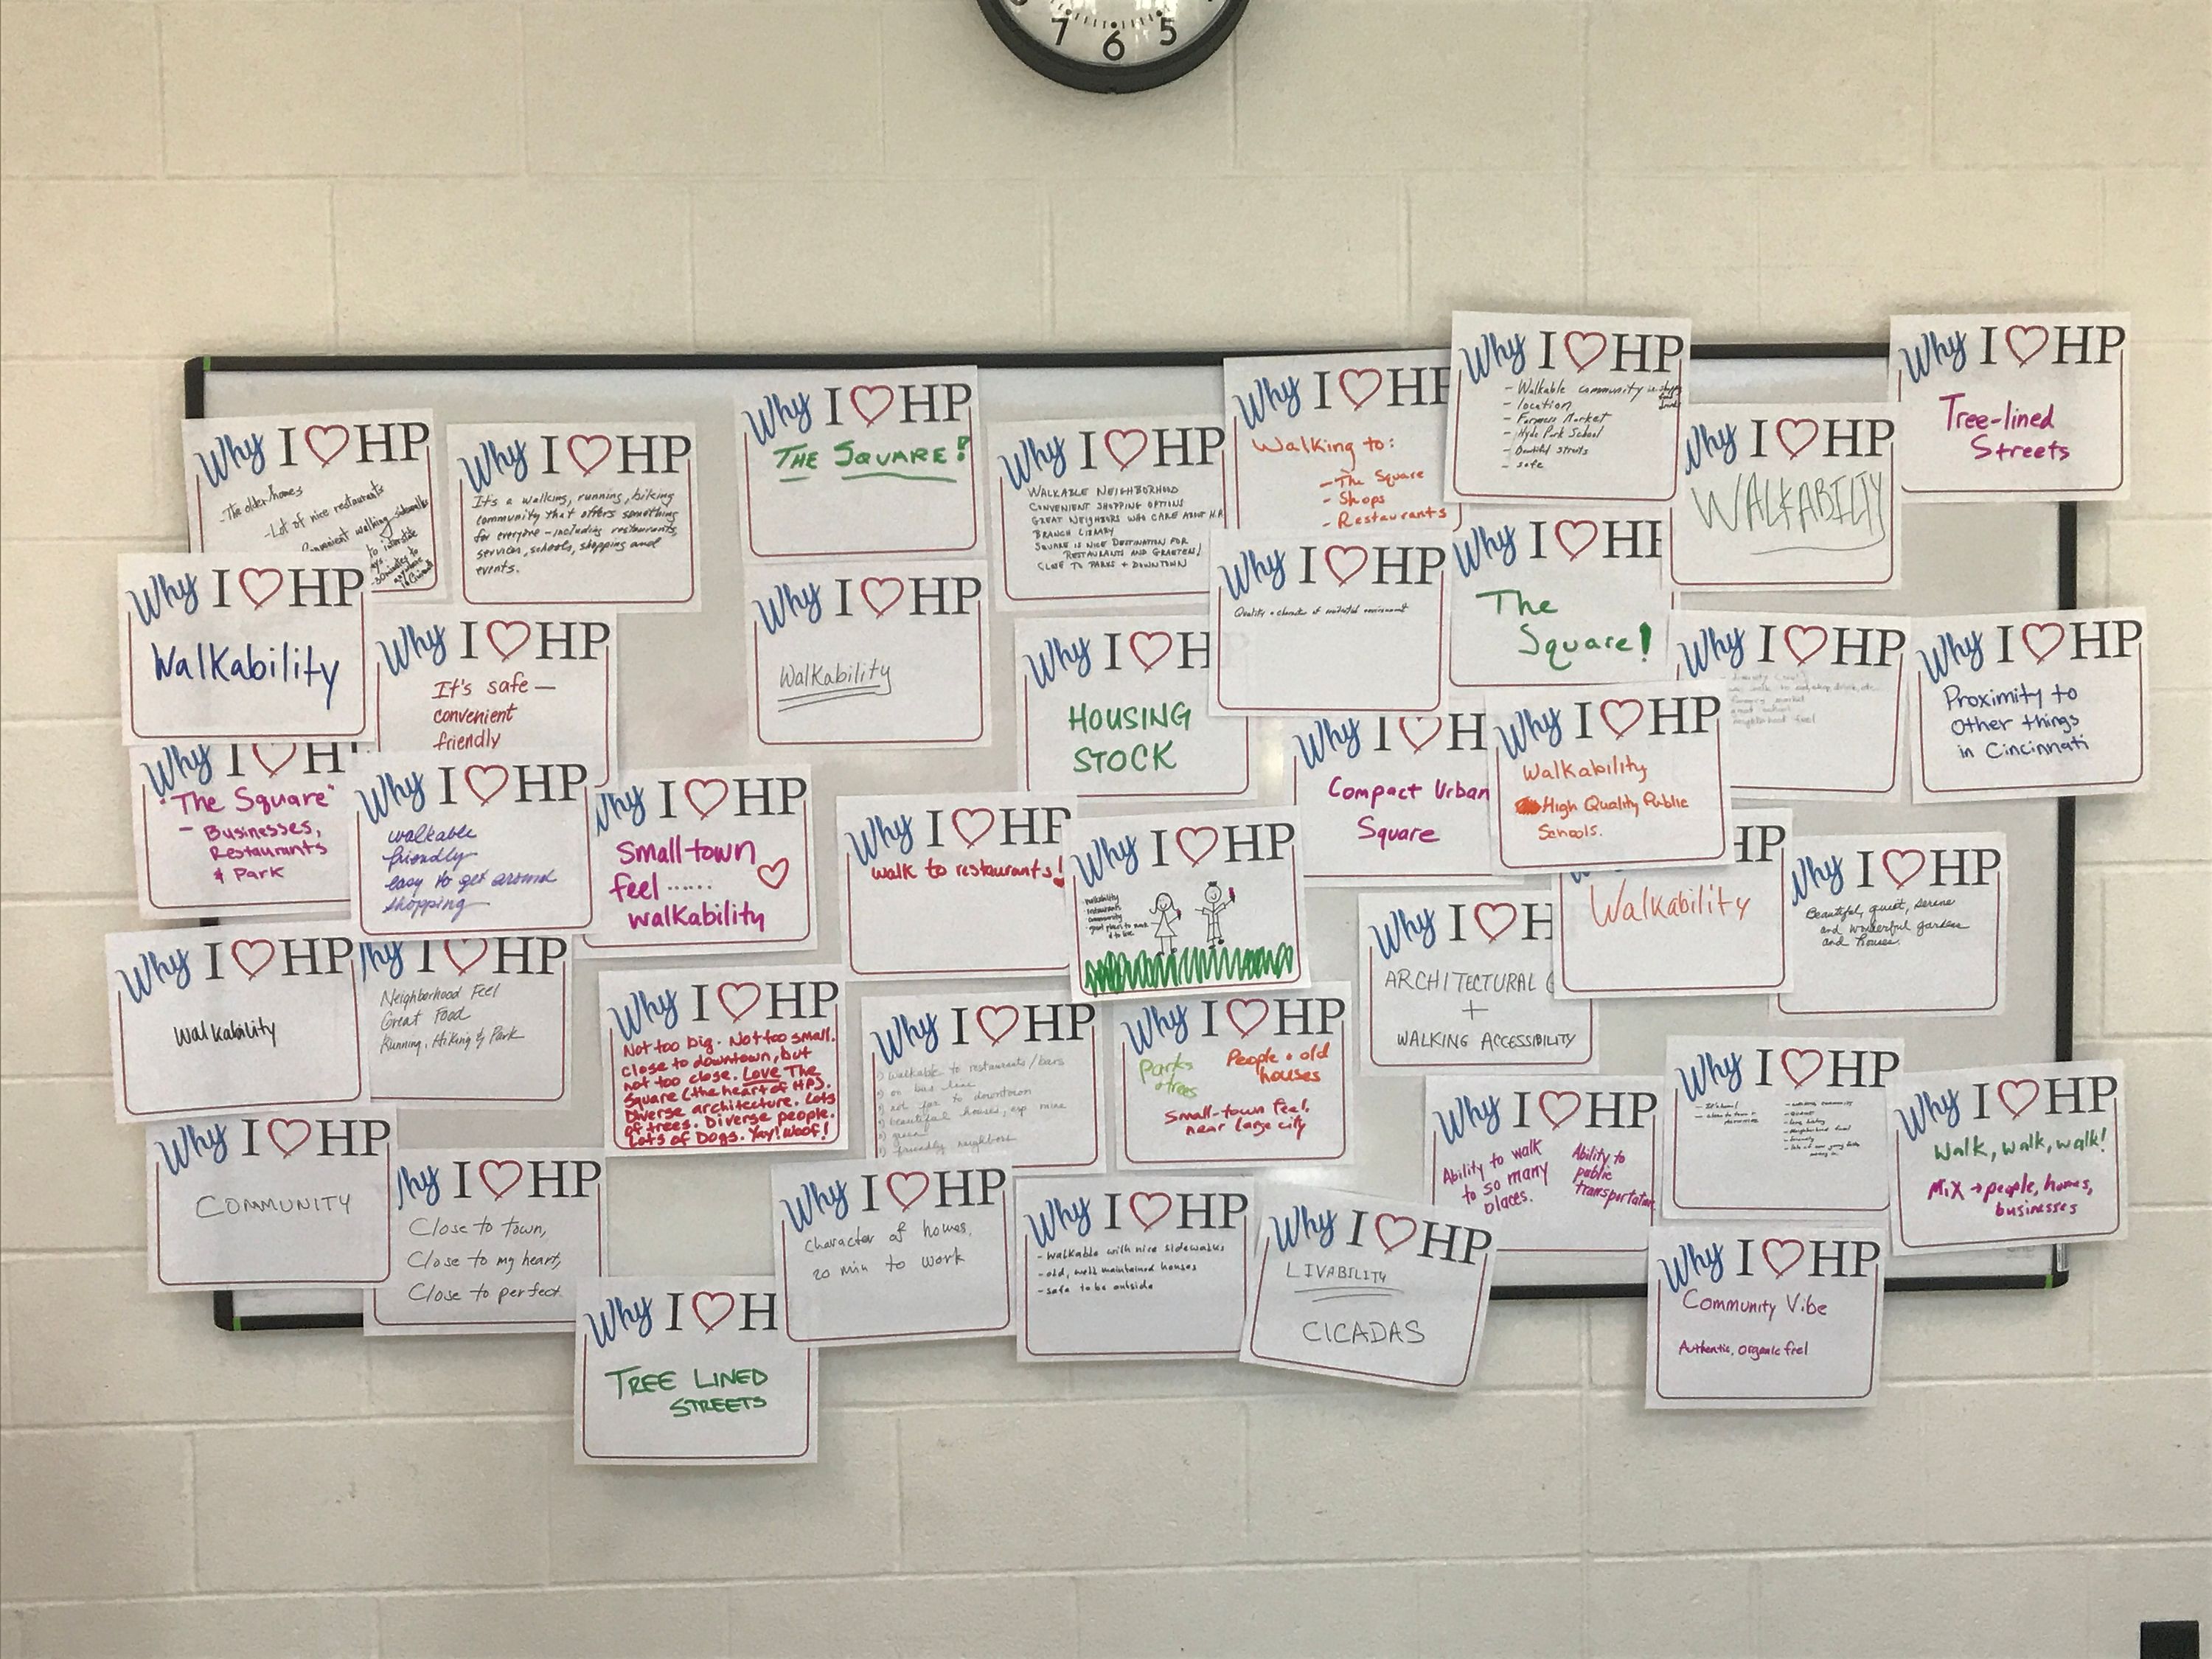 7 6 5
Why I ♡ HP
- The older homes
- Lot of nice restaurants
walking sidewalks
to interstate
Why I ♡ HP
It's a walking, running, biking
community that offers something
for everyone - including restaurants,
services, schools, shopping and
events.
Why I ♡ HP
THE SQUARE!
Why I ♡ HP
WALKABLE NEIGHBORHOOD
CONVENIENT SHOPPING OPTIONS
GREAT NEIGHBORS WHO CARE ABOUT H.P.
BRANCH LIBRARY
SQUARE IS NICE DESTINATION FOR
RESTAURANTS AND GRAETERS!
CLOSE TO PARKS + DOWNTOWN
Why I ♡ HP
Walking to:
- The Square
- Shops
- Restaurants
Why I ♡ HP
- Walkable community
- location
- Farmers Market
- Hyde Park School
- Beautiful streets
- safe
Why I ♡ HP
WALKABILITY
Why I ♡ HP
Tree-lined
Streets
Why I ♡ HP
Walkability
Why I ♡ HP
It's safe —
convenient
friendly
Why I ♡ HP
Walkability
Why I ♡ H
HOUSING
STOCK
Why I ♡ HP
Quality + character of residential environment
Why I ♡ HP
The
Square!
Why I ♡ HP
neighborhood feel
Why I ♡ HP
Proximity to
Other things
in Cincinnati
Why I ♡ H
"The Square"
- Businesses,
Restaurants
& Park
Why I ♡ HP
walkable
friendly
easy to get around
shopping
Why I ♡ HP
Small town
feel ......
walkability
Why I ♡ HP
walk to restaurants!
Why I ♡ HP
walkability
restaurants
community
Why I ♡ H
Compact Urban
Square
Why I ♡ HP
Walkability
High Quality Public
Schools.
HP
Walkability
Why I ♡ HP
Beautiful, quiet, serene
and wonderful gardens
and houses.
Why I ♡ HP
Walkability
Why I ♡ HP
Neighborhood Feel
Great Food
Running, Hiking & Park
Why I ♡ HP
Not too big. Not too small.
Close to downtown, but
not too close. Love The
Square (the heart of HP).
Diverse architecture. Lots
of trees. Diverse people.
Lots of Dogs. Yay! Woof!
Why I ♡ HP
1) walkable to restaurants/bars
on bus line
not far to downtown
beautiful houses, esp mine
friendly neighbors
Why I ♡ HP
Parks
+ trees
People + old
houses
Small-town feel,
near large city
Why I ♡ H
ARCHITECTURAL
+
WALKING ACCESSIBILITY
Why I ♡ HP
COMMUNITY
Why I ♡ HP
Close to town,
Close to my heart,
Close to perfect.
Why I ♡ H
TREE LINED
STREETS
Why I ♡ HP
Character of homes.
20 min to work
Why I ♡ HP
- walkable with nice sidewalks
- old, well maintained houses
- safe to be outside
Why I ♡ HP
LIVABILITY
CICADAS
Why I ♡ HP
Ability to walk
to so many
places.
Ability to
public
transportation
Why I ♡ HP
Why I ♡ HP
Walk, walk, walk!
Mix → people, homes,
businesses
Why I ♡ HP
Community Vibe
Authentic, organic feel